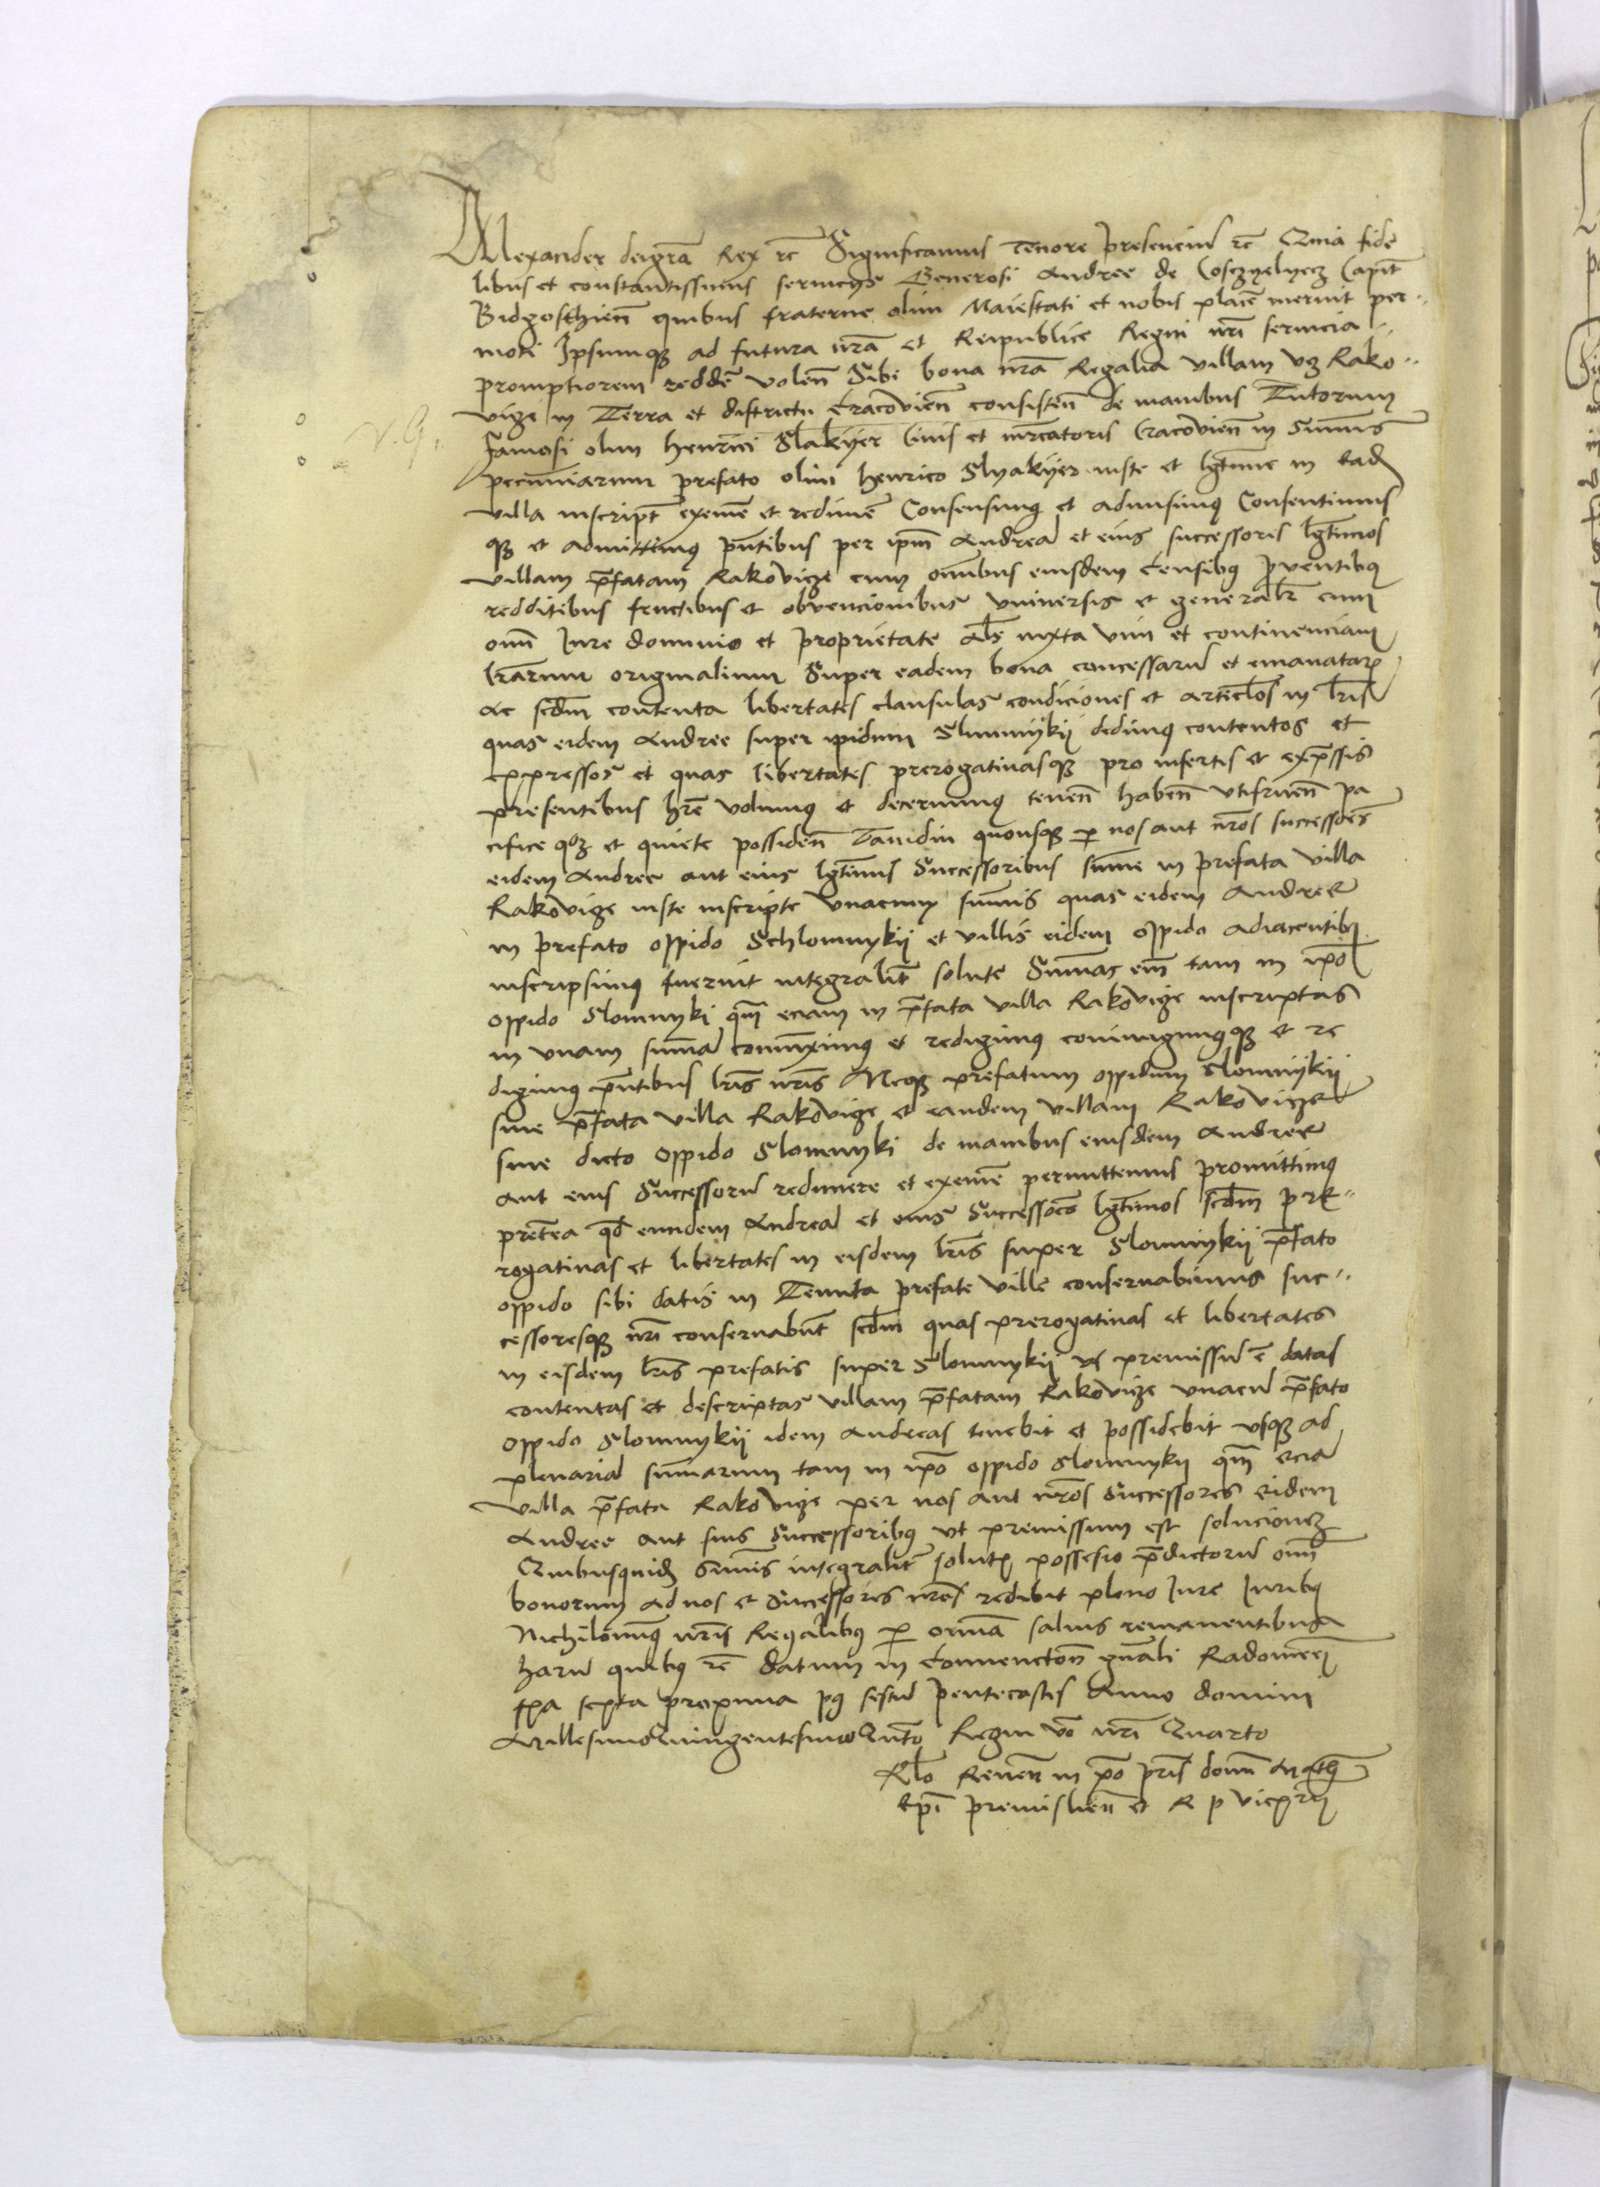 Allexander dei gra Rex rc Significamus tenore presenciu rc Quia fide
libus et constantissimis seruicys Generosi Andree de Cosczyelyecz Capit
Bidgosthien quibus fraterne olim Maiestati et nobis place meruit per
moti Ipsumqz ad futura nra et Reipublice Regni nri seruicia
promptiorem redde volen Sibi bona nra Regalia villam vz Rako
vize in Terra et districtu Cracovien consisten de manibus Tutorum
famosi olim Henrici Slakyer Ciuis et mrcatoris Cracovien in Sumis
pecuniarum prefato olim Henrico Slyakyer iuste et lgtime in ead
villa inscript exeme et redime Consensimq et admisimq Consentimus
qz et admittimq pntibus per ipm Andrea et eius successores lgtimos
villam pfatam Rakovicze cum omibus eiusdem Censibq pventibq
redditibus fructibus et obvencionibus vniversis et generalr cum
omi Iure dominio et proprietate Als iuxta vim et continenciam
lrarum originalium Super eadem bona concessaru et emanatar
Ac scdm contenta libertates clausulas condiciones et articlos in lris
quas eidem Andree super opidum Slomnykij dedimq contentos et
expressos et quas libertates prerogatinasqz pro insertis et expssis
presentibus hre volumq et decernimq tenen haben vtifruen pa
cifice qoz et quiete possiden Tamdiu quousqz p nos aut nros successores
eidem Andree aut eius lgtimis Successoribus sume in prefata villa
Rakovize iuste inscripte vnacum sumis quas eidem Andree
in prefato oppido Schlomnykij et villis eidem oppido adiacentibq
inscripsimq fuerint integralit solute Sumas em tam in ipo
oppido Slomnyki qm eciam in pfata villa Rakovize inscriptas
in vnam suma coniunximq et redigimq coniungimqqz et re
digimq pntibus lris nris Necqz prefatum oppidum Slomnykij
sine pfata villa Rakovize et eandem villam Rakovicze
sine dicto oppido Slomnyki de manibus eiusdem Andree
aut eius Successoru redimere et exeme permittemus promittimq
preterea qd eundem Andrea et eius Successores lgtimos scdm pre
rogatinas et libertates in eisdem lris super Slomnykij pfato
oppido sibi datis in Tenuta prefate ville conservabimus suc
cessoresqz nri conservabunt scdm quas prerogatinas et libertates
in eisdem lris prefatis super Slomnykij vt premissu e datas
contentas et descriptas villam pfatam Rakovize vnacu pfato
oppido Slomnykij idem Andreas tenebit et possidebit vsqz ad
plenaria sumarum tam in ipo oppido Slomnyky qm ecia
villa pfata Rakovize per nos aut nros Successores eidem
Andree aut suis Successoribq vt premissum est solucionez
Quibusquid Sumis integralit solutis possesio pdictoru omi
bonorum ad nos et Successores nros redibit pleno Iure Iuribq
Nichilominq nris Regalibq p omia saluis remanentibus
Haru quibq rc datum in Convencione gnali Radomien
fia sexta proxima pq festu Pentecostes Anno domini
Millesimo Quingentesimo Qinto Regni vo nri Quarto
Rlo Reuen in xpo pris domi Mathie
Epi Premislien et R p vicecan